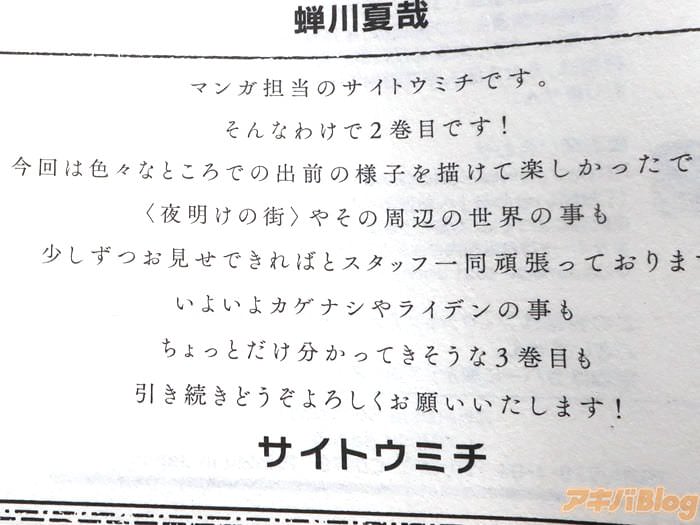 蝉川夏哉
マンガ担当のサイトウミチです。
そんなわけで2巻目です!
今回は色々なところでの出前の様子を描けて楽しかったで
〈夜明けの街〉やその周辺の世界の事も
少しずつお見せできればとスタッフ一同頑張っております
いよいよカゲナシやライデンの事も
ちょっとだけ分かってきそうな3巻目も
引き続きどうぞよろしくお願いいたします!
サイトウミチ
アキバBlog